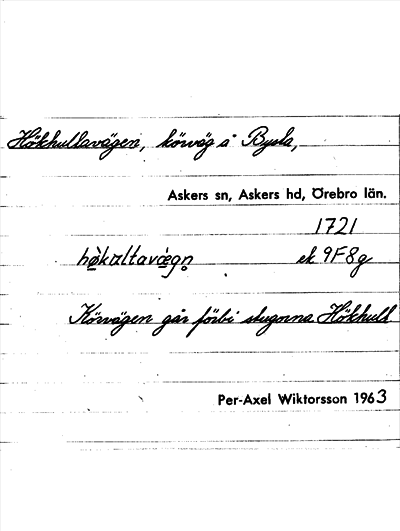 Hökhultavägen, körväg å Bysta,
Askers sn, Askers hd, Örebro län.
1721
hø̀kɷltavæ̀gn̥ ek 9F8g
Körvägen går förbi stugorna Hökhult
Per-Axel Wiktorsson 1963